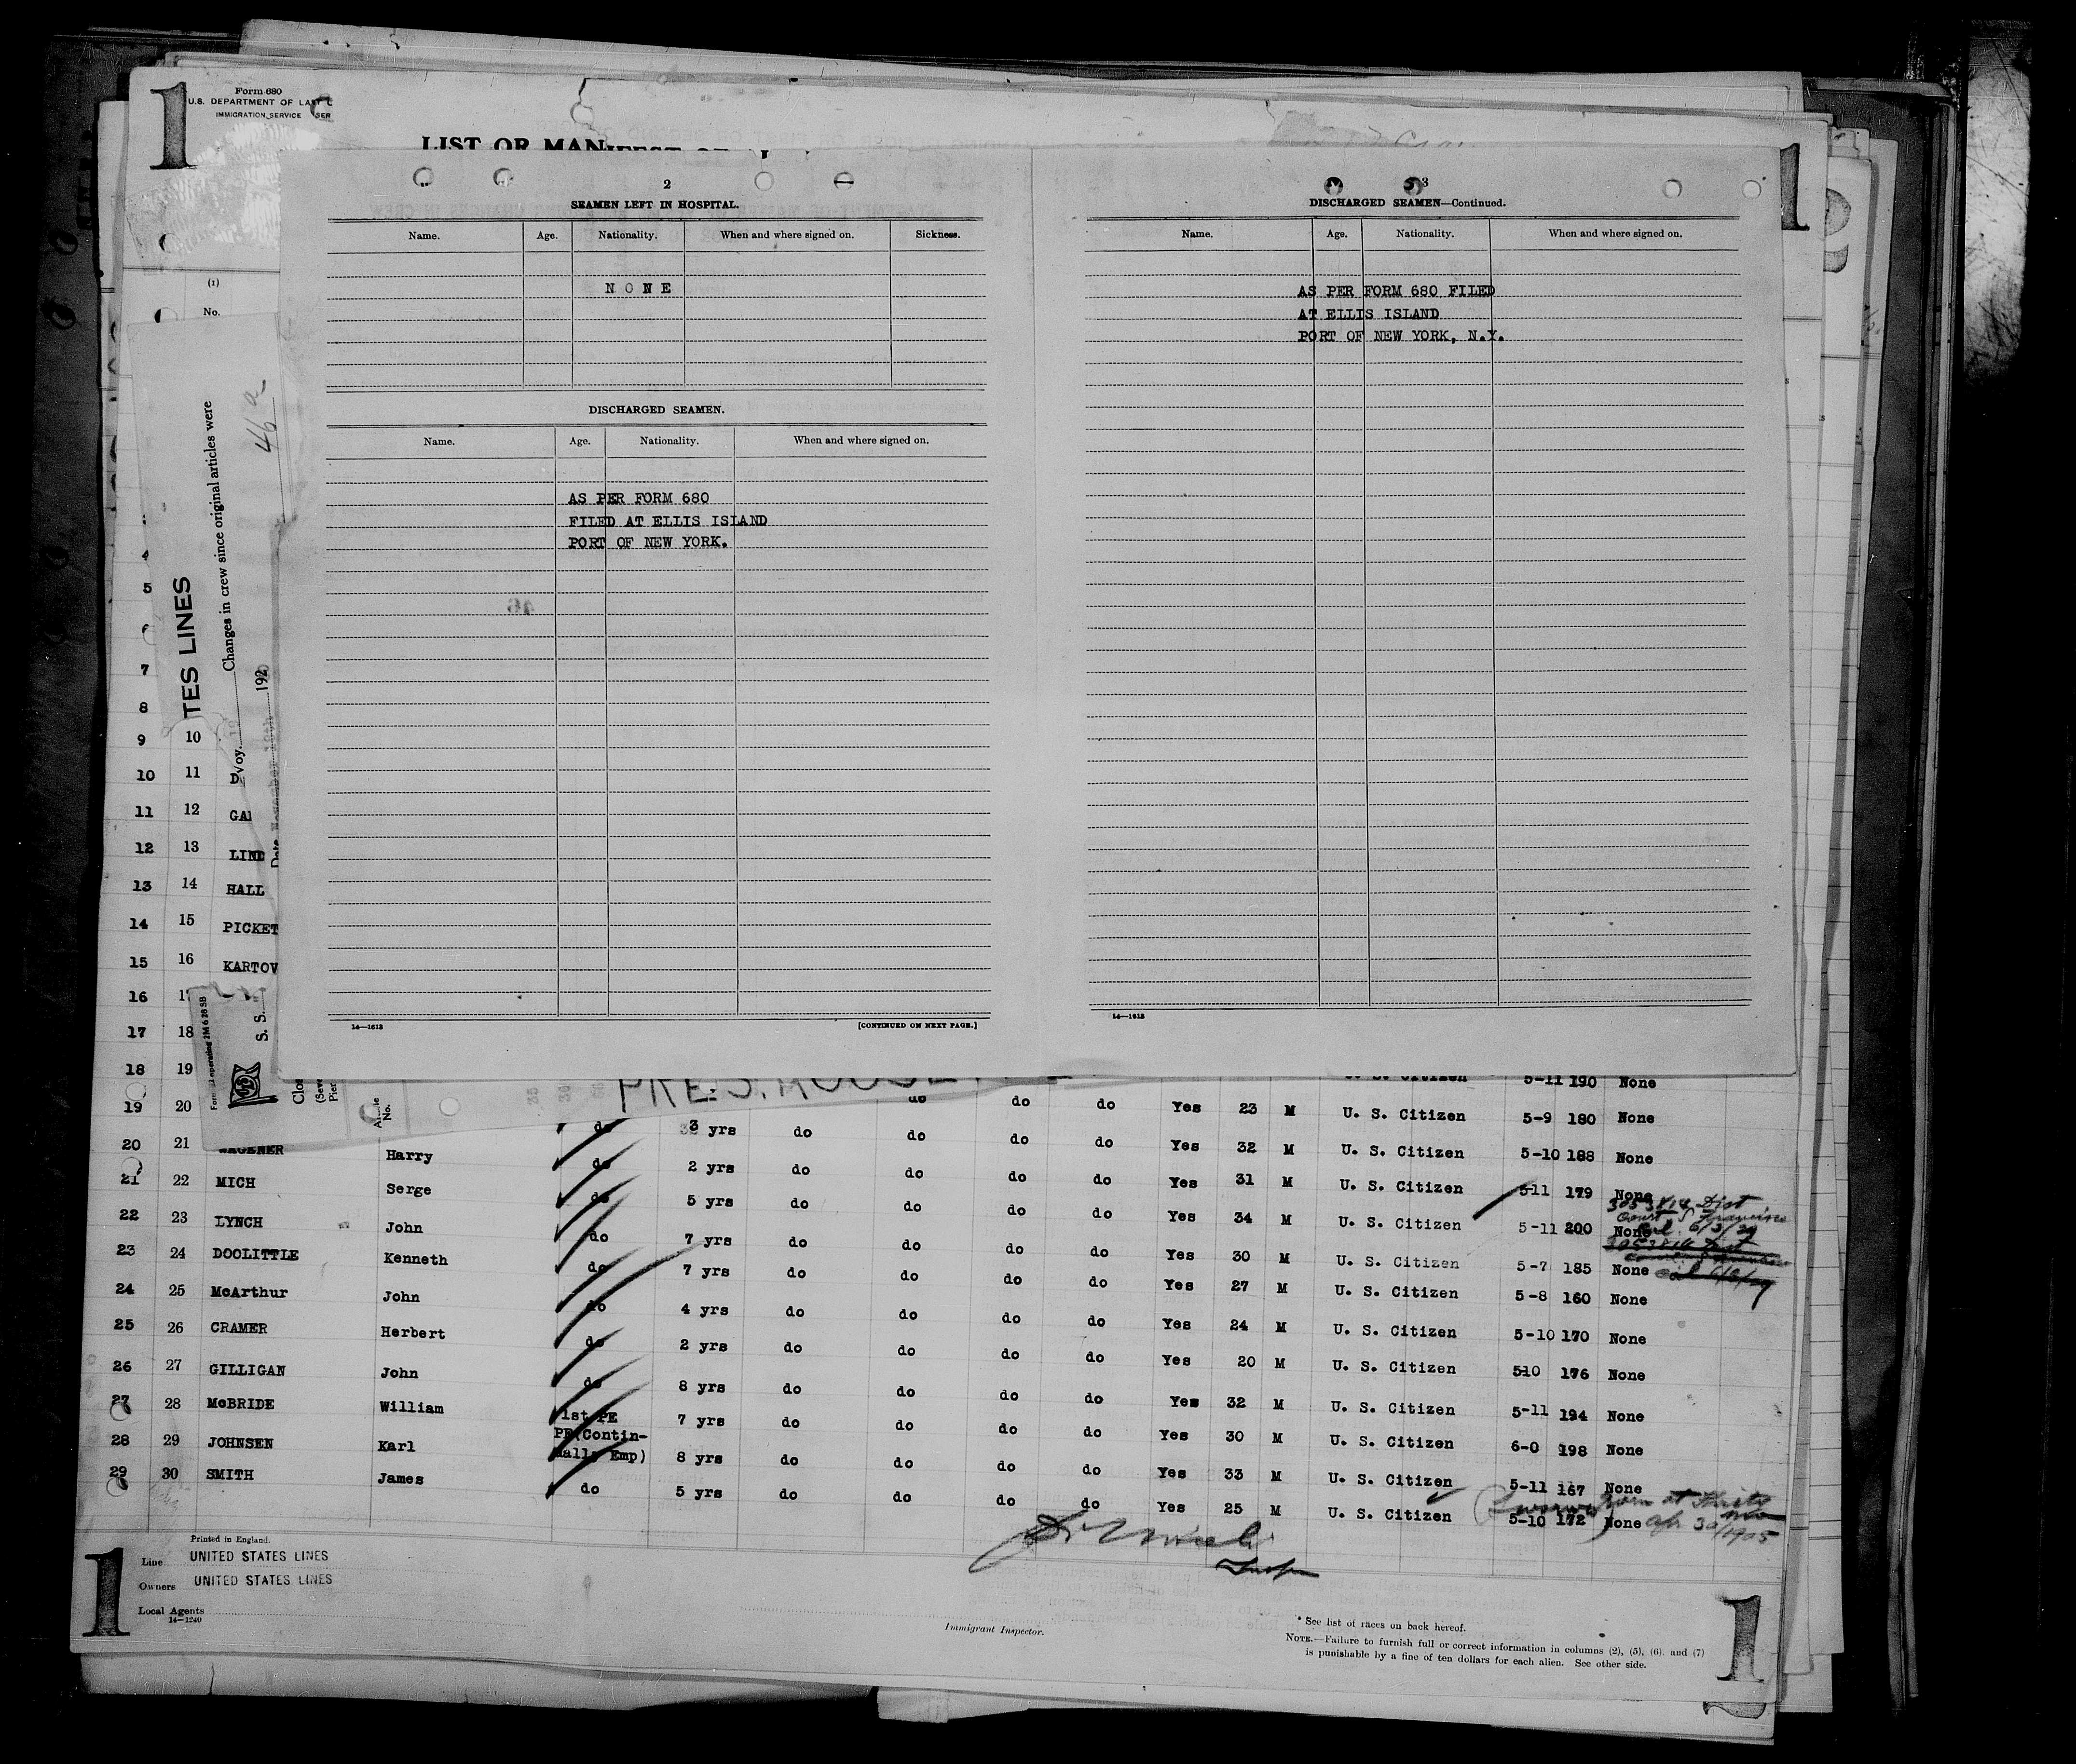 1
Form 680
U.S. DEPARTMENT OF LA
IMMIGRATION SERVICE
LIST OR MANIFEST
1
(1)
No.
2
SEAMEN LEFT IN HOSPITAL.
Name. Age. Nationality. When and where signed on. Sickness.
NONE
DISCHARGED SEAMEN.
Name. Age. Nationality. When and where signed on.
AS PER FORM 680
FILED AT ELLIS ISLAND
PORT OF NEW YORK.
14—1613 [CONTINUED ON NEXT PAGE.]
3
DISCHARGED SEAMEN—Continued.
Name. Age. Nationality. When and where signed on.
AS PER FORM 680 FILED
AT ELLIS ISLAND
PORT OF NEW YORK, N.Y.
14—1613
TES LINES
Changes in crew since original articles were
46 a
Voy.
192
S. S.
4
5
7
8
9 10
10 11
11 12 GA
12 13 LIND
13 14 HALL
14 15 PICKET
15 16 KARTOV
16
17 18
18 19 U. S. Citizen 5-11 190 None
19 20 do do do Yes 23 M U. S. Citizen 5-9 180 None
20 21 WAGENER Harry do 3 yrs do do do do Yes 32 M U. S. Citizen 5-10 188 None
21 22 MICH Serge do 2 yrs do do do do Yes 31 M U. S. Citizen 5-11 179 None
22 23 LYNCH John do 5 yrs do do do do Yes 34 M U. S. Citizen 5-11 200 None
23 24 DOOLITTLE Kenneth do 7 yrs do do do do Yes 30 M U. S. Citizen 5-7 185 None
24 25 McArthur John do 7 yrs do do do do Yes 27 M U. S. Citizen 5-8 160 None
25 26 CRAMER Herbert do 4 yrs do do do do Yes 24 M U. S. Citizen 5-10 170 None
26 27 GILLIGAN John do 2 yrs do do do do Yes 20 M U. S. Citizen 510 176 None
27 28 McBRIDE William do 8 yrs do do do do Yes 32 M U. S. Citizen 5-11 194 None
28 29 JOHNSEN Karl 1st PE 7 yrs do do do do Yes 30 M U. S. Citizen 6-0 198 None
29 30 SMITH James 8 yrs do do do do Yes 33 M U. S. Citizen 5-11 167 None
do 5 yrs do do do do Yes 25 M U. S. Citizen 5-10 172 None
PRES. ROOSE
Printed in England.
Line UNITED STATES LINES
Owners UNITED STATES LINES
Local Agents
14—1240
1
Immigrant Inspector.
* See list of races on back hereof.
NOTE.—Failure to furnish full or correct information in columns (2), (5), (6) and (7)
is punishable by a fine of ten dollars for each alien. See other side.
1